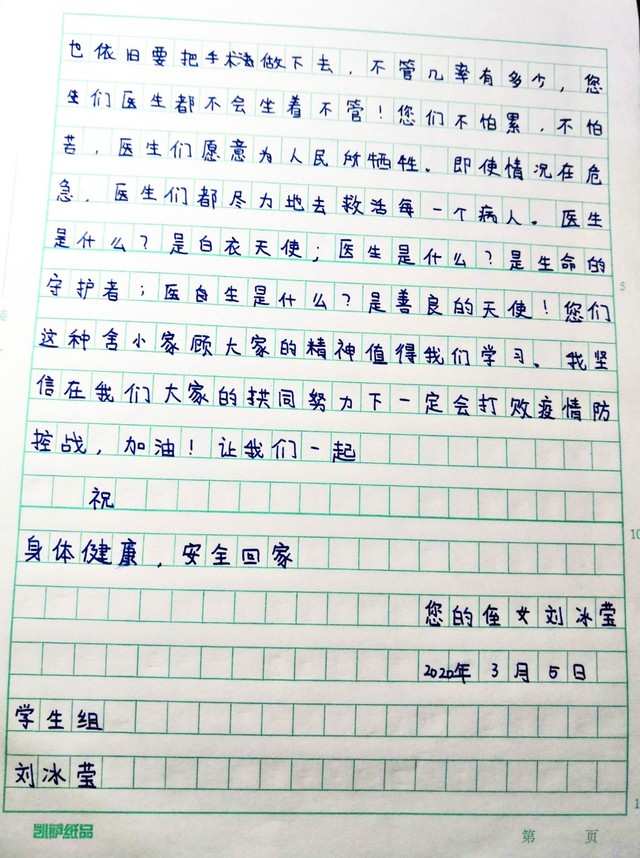 也依旧要把手术法做下去，不管几率有多少，您
生们医生都不会坐着不管！您们不怕累，不怕
苦，医生们愿意为人民所牺牲。即使情况在危
急，医生们都尽力地去救活每一个病人。医生
是什么？是白衣天使；医生是什么？是生命的
守护者；医自生是什么？是善良的天使！您们
这种舍小家顾大家的精神值得我们学习。我坚
信在我们大家的拱同努力下一定会打败疫情防
控战，加油！让我们一起
祝
身体健康，安全回家
您的侄女刘冰莹
2020年3月5日
学生组
刘冰莹
凯萨纸品
第 页
5
10